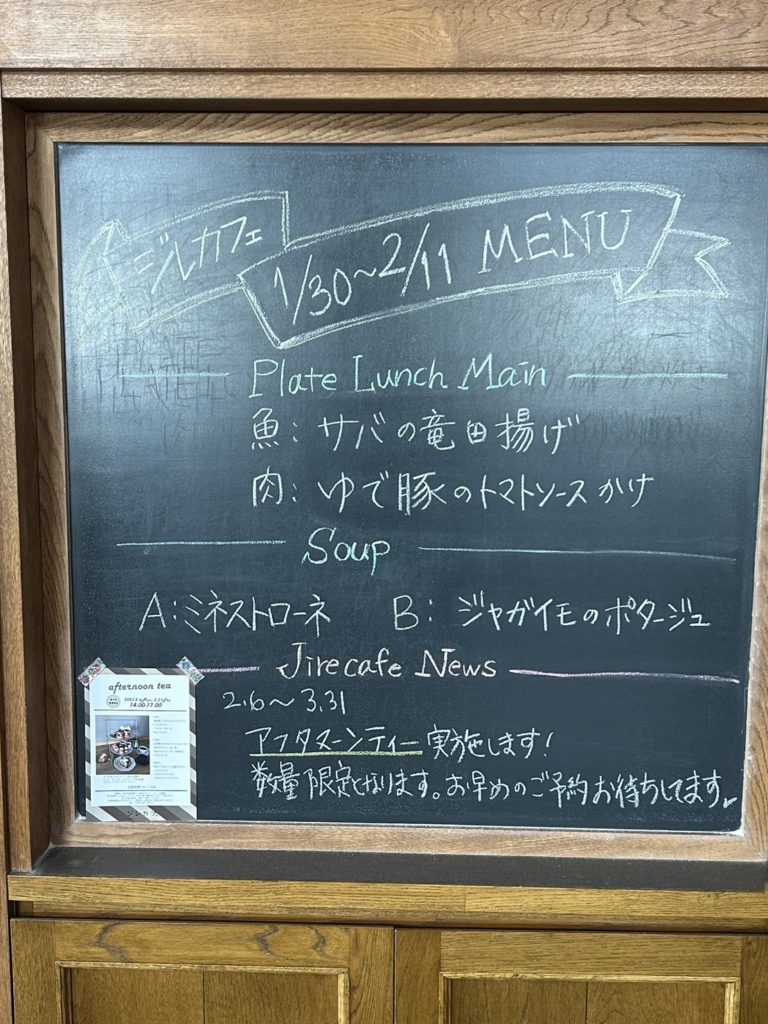 ジレカフェ
1/30~2/11 MENU
Plate Lunch Main
魚: サバの竜田揚げ
肉: ゆで豚のトマトソースかけ
Soup
A:ミネストローネ B: ジャガイモのポタージュ
Jirecafe News
2.6～3.31
アフタヌーンティー実施します!
数量限定となります。お早めのご予約お待ちしてます
afternoon tea
14:00-17:00
ジレカフェ